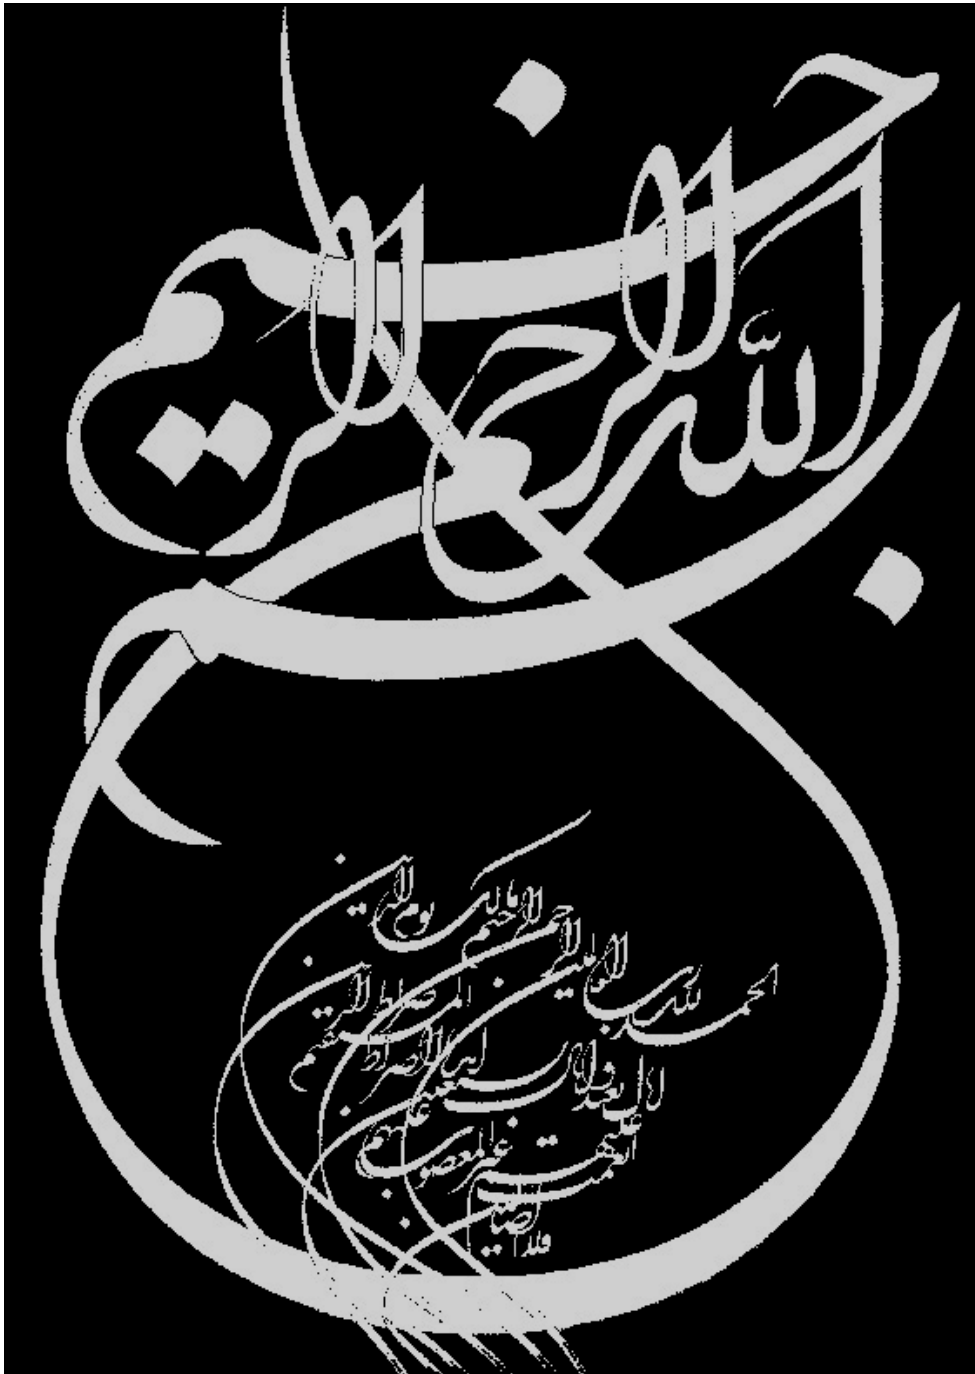 بسم الله الرحمن الرحیم
الحمد لله رب العالمین الرحمن الرحیم مالک یوم الدین
ایاک نعبد و ایاک نستعین اهدنا الصراط المستقیم صراط الذین
انعمت علیهم غیر المغضوب علیهم
ولا الضالین